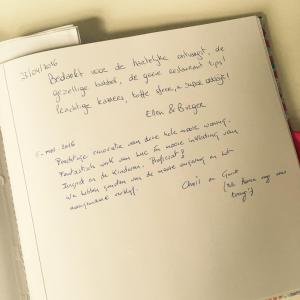 3/04/2016
Bedankt voor de hartelijke ontvangst, de
gezellige babbel, de goeie restaurant tips!
Prachtige kamers, toffe sfeer, super ontbijt!
Ellen &
5 mei 2016
Prachtige renovatie van deze hele mooie woning.
Fantastisch werk van Luc en mooie inkleding van
Ingrid en de kinderen. Proficiat!
We hebben genoten van de mooie omgeving en het
aangename verblijf.
Chris en
(We komen nog eens
terug!)